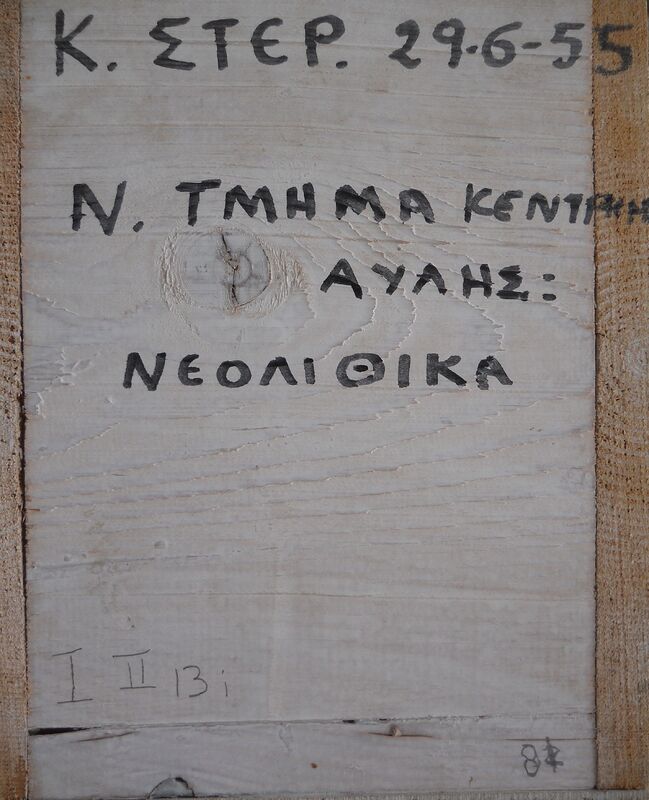 Κ. ΣΤΕΡ. 29-6-55
Ν. ΤΜΗΜΑ ΚΕΝΤΡΙΚΗΣ
ΑΥΛΗΣ:
ΝΕΟΛΙΘΙΚΑ
I II 13 i